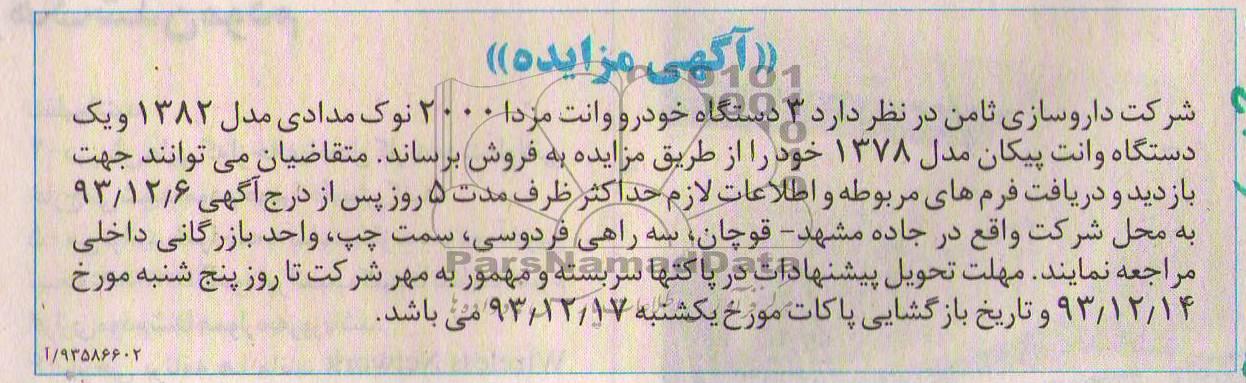 ((آگهی مزایده))
شرکت داروسازی ثامن در نظر دارد ۳ دستگاه خودرو وانت مزدا ۲۰۰۰ نوک مدادی مدل ۱۳۸۲ و یک
دستگاه وانت پیکان مدل ۱۳۷۸ خود را از طریق مزایده به فروش برساند. متقاضیان می توانند جهت
بازدید و دریافت فرم های مربوطه و اطلاعات لازم حداکثر ظرف مدت ۵ روز پس از درج آگهی ۹۳٫۱۲٫۶
به محل شرکت واقع در جاده مشهد- قوچان، سه راهی فردوسی، سمت چپ، واحد بازرگانی داخلی
مراجعه نمایند. مهلت تحویل پیشنهادات در پاکتها سربسته و مهمور به مهر شرکت تا روز پنج شنبه مورخ
۹۳٫۱۲٫۱۴ و تاریخ بازگشایی پاکات مورخ یکشنبه ۹۳٫۱۲٫۱۷ می باشد.
۹۳۵۸۶۶۰۲/آ
ParsNamadData